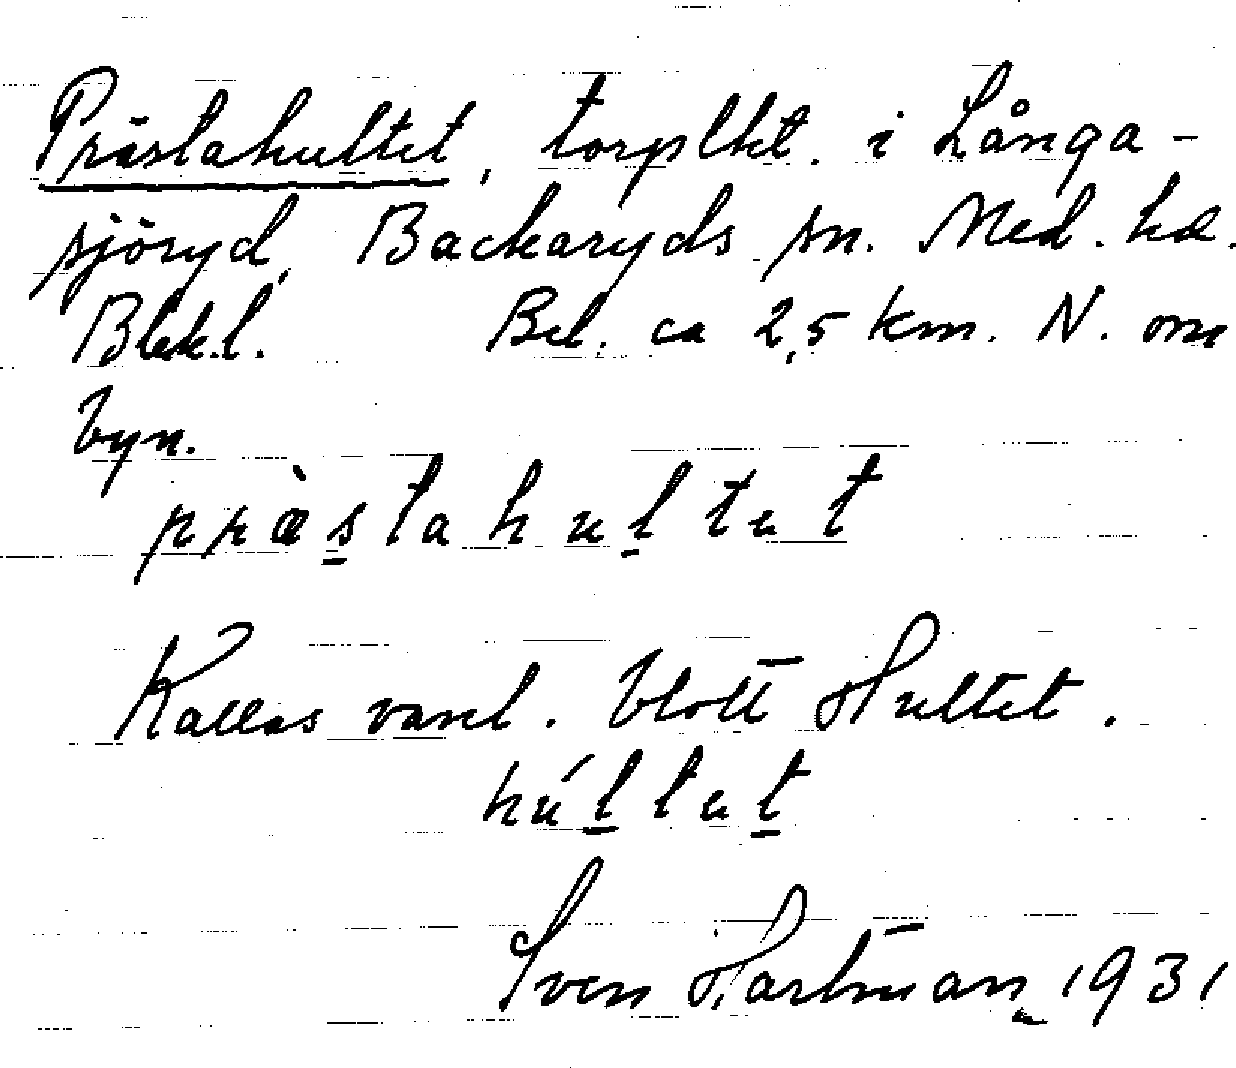 Prästahultet, torplht. i Långa-
sjöryd, Backaryds sn. Med. hd.
Blek.l. Bel. ca 2,5 km. N. om
byn.
præ̀stahultet
Kallas vanl. blott Hultet.
húltet
Sven Hartman 1931